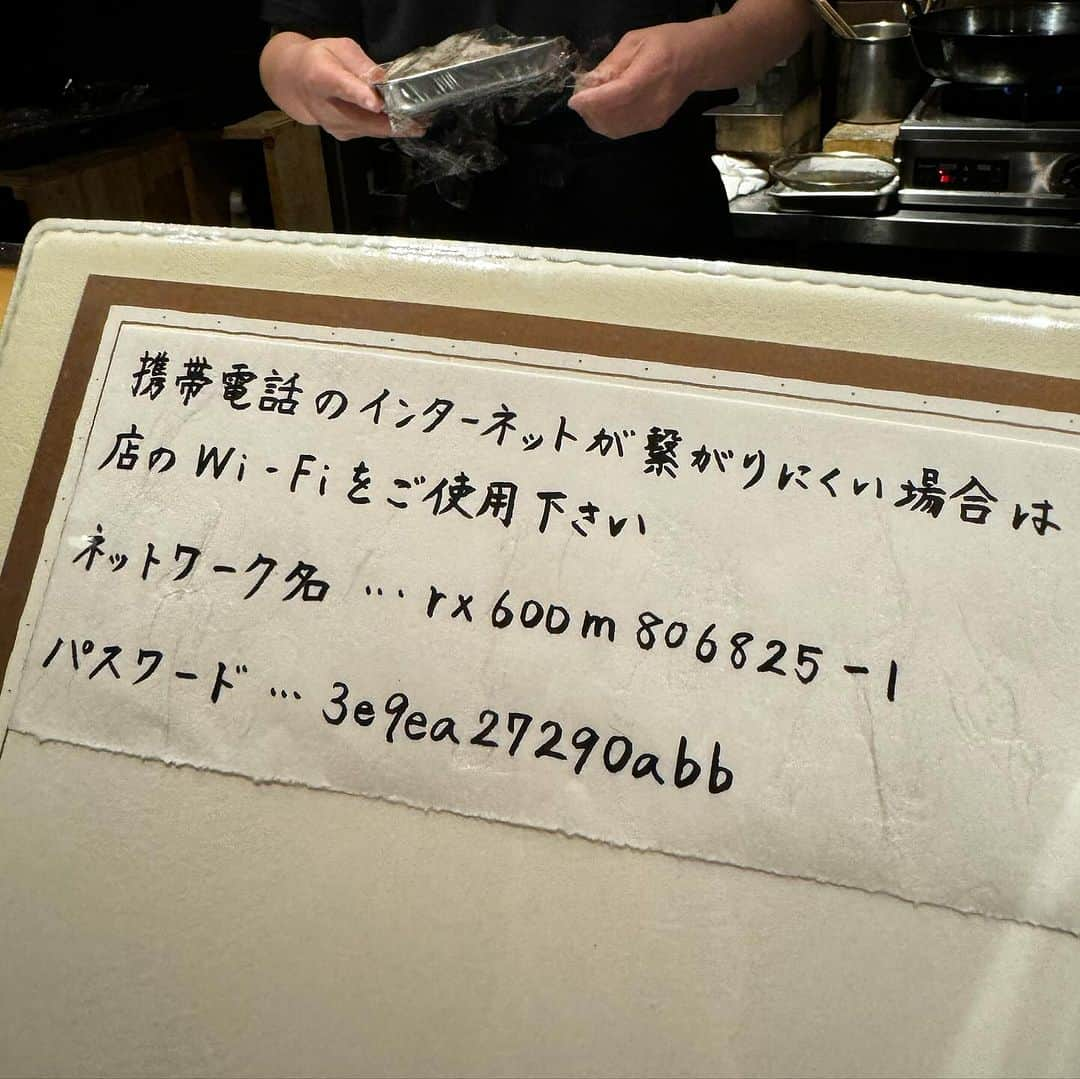 携帯電話のインターネットが繋がりにくい場合は
店のWi-Fiをご使用下さい
ネットワーク名 … rx600m806825-1
パスワード … 3e9ea27290abb